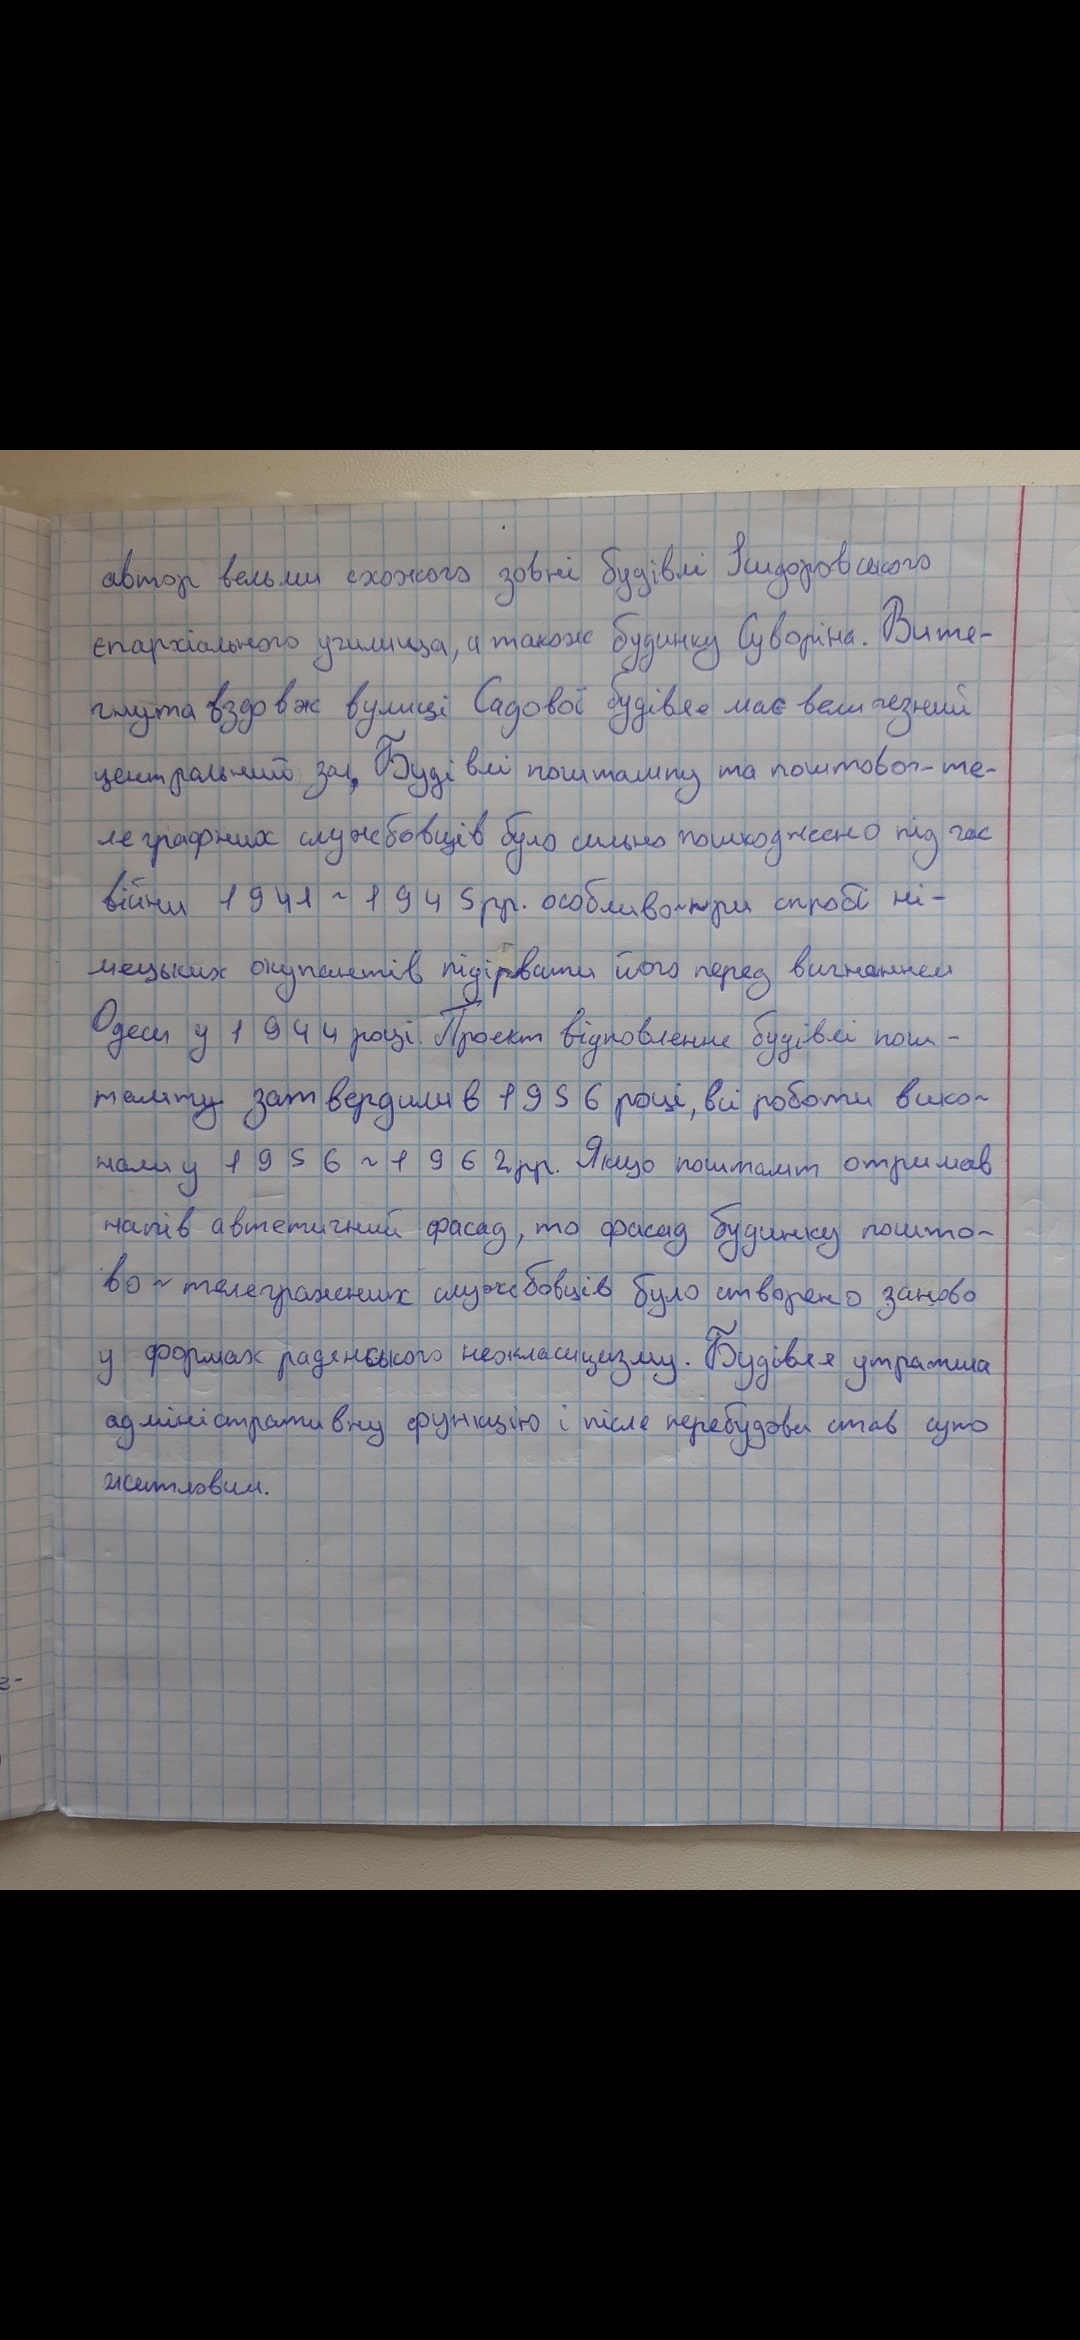 автор вельми схожого зовні будівлі Ісидоровського
єпархіального училища, а також будинку Суворіна. Витя-
гнута вздовж вулиці Садової будівля має величезний
центральний зал. Будівлі поштампу та поштовог-те-
леграфних службовців було сильно пошкоджено під час
війни 1941~1945рр. особливо~при спробі ні-
мецьких окупантів підірвати його перед вигнанням
Одеси у 1944 році. Проєкт відновлення будівлі пош-
тамту затвердили в 1956 році, всі роботи вико-
нали у 1956~1962рр. Якщо поштамт отримав
напів автетичний фасад, то фасад будинку пошто-
во~телегражених службовців було створено заново
у формах раденського неокласицизму. Будівля утратила
адміністративну функцію і після перебудови став суто
житловим.